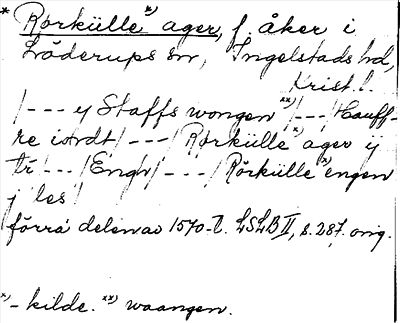 * Rörkülle *) ager, f. åker i
Löderups sn, Ingelstads hd,
Krist. l.
/--- y Staffs wongen **) /---/ Hauff-
re iordt /---/ Rörkülle *) ager y
tr --- / Engh /---/ Rörkülle *) engen
j les /
förra delen av 1570-t. LSLB II, s. 287. orig.
*) - kilde. **) waangen.